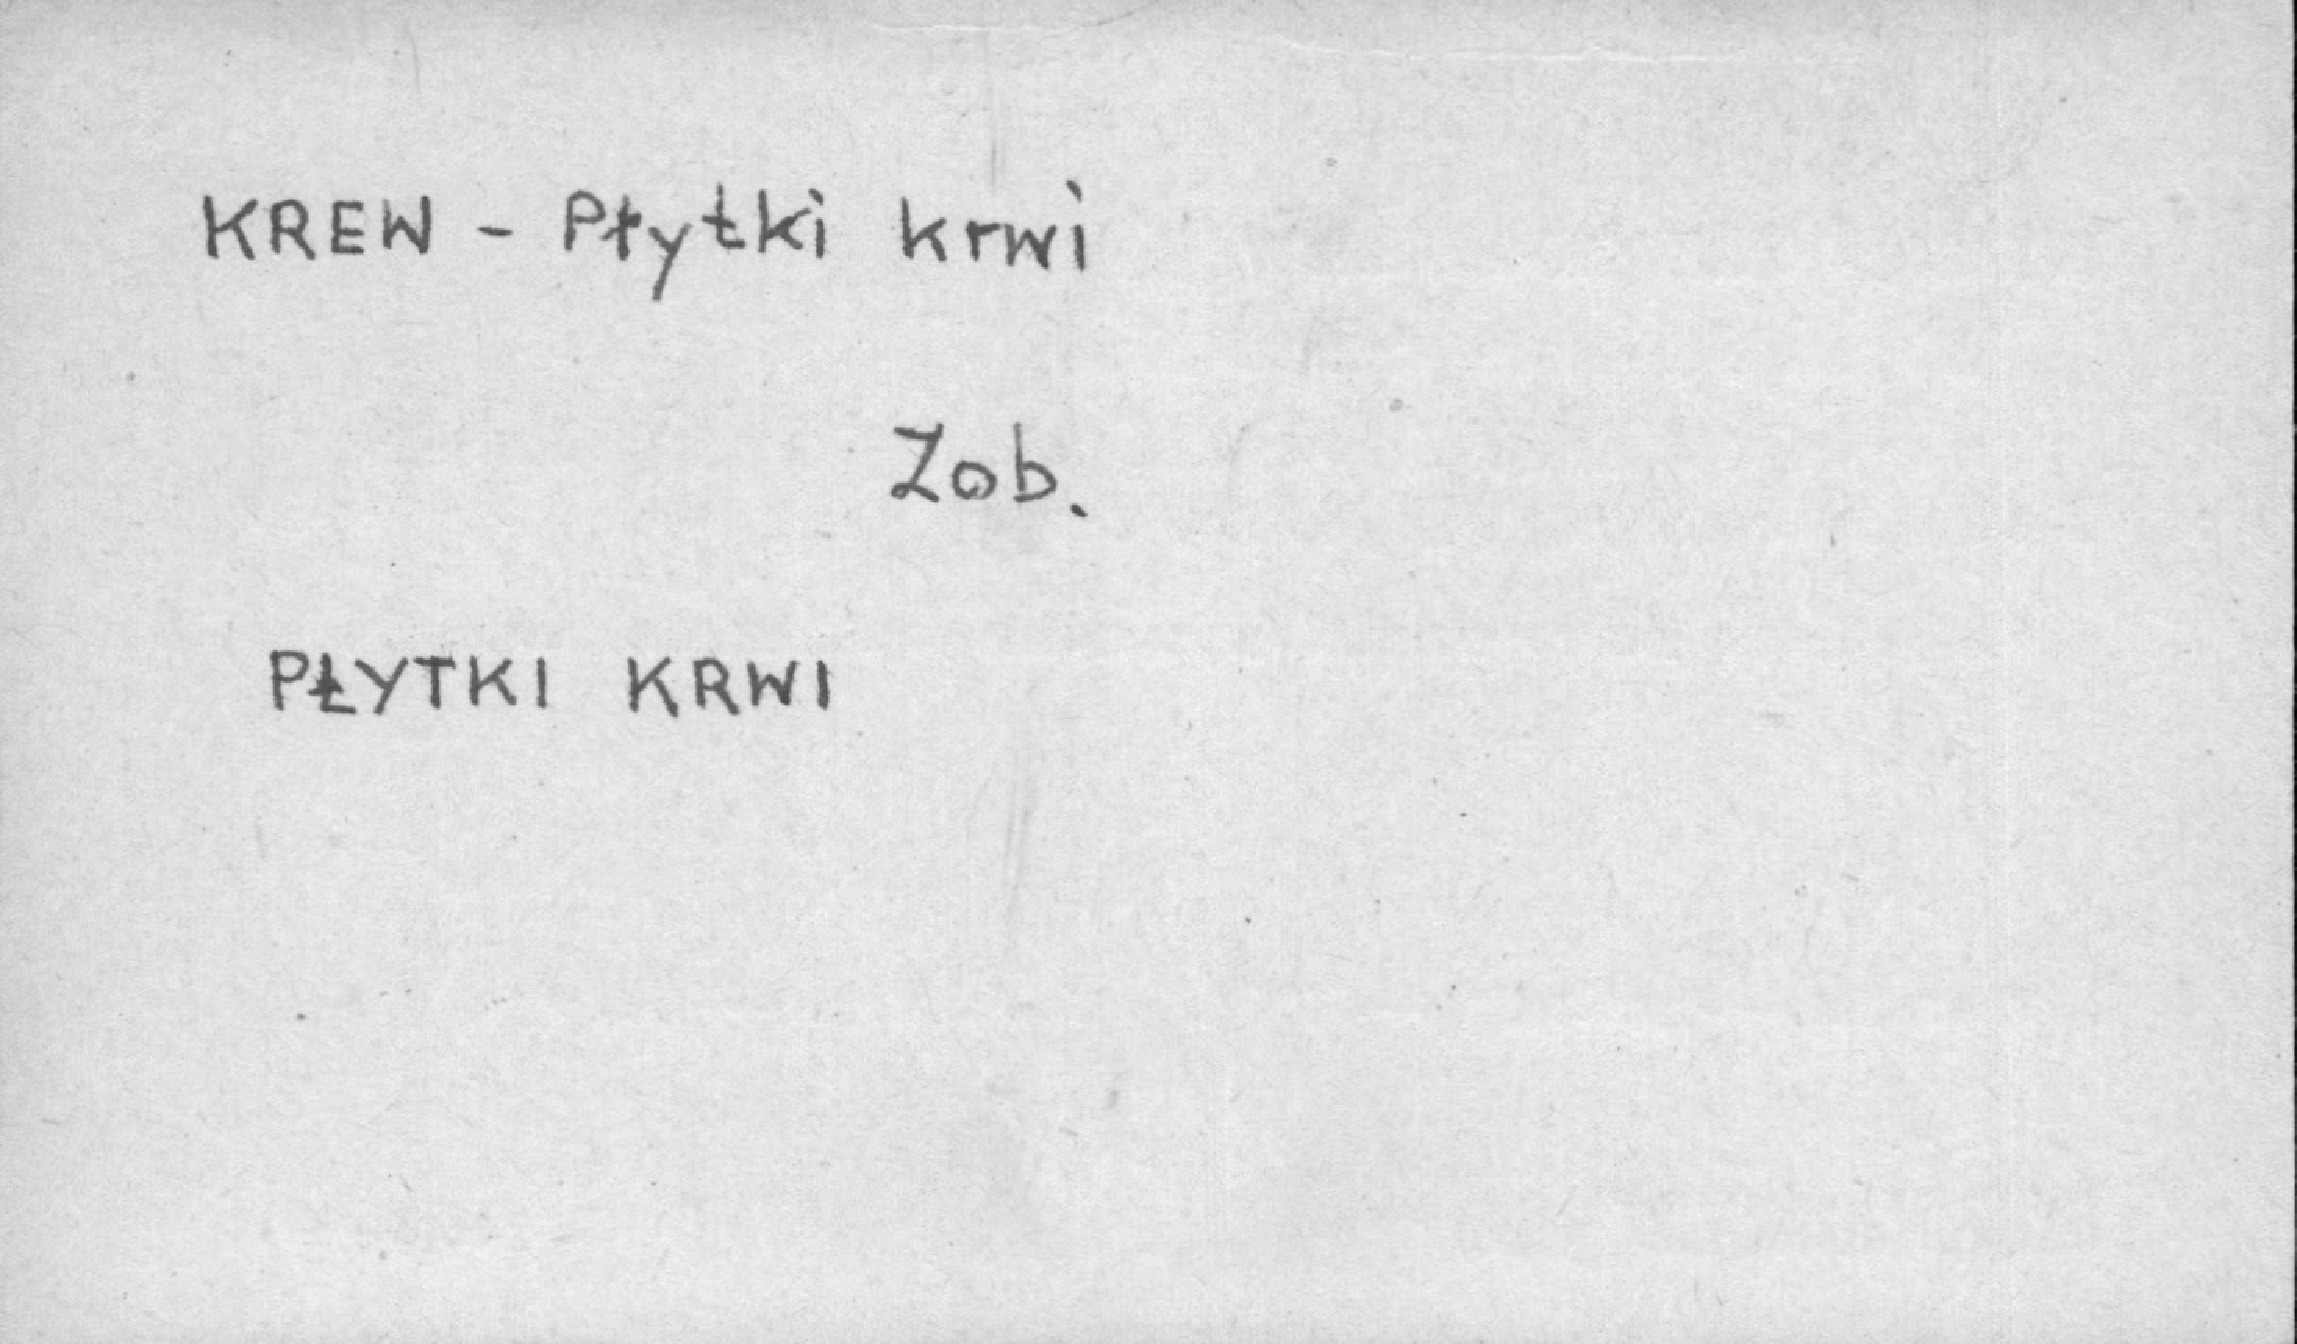 KREW - Płytki krwi
Zob.
PŁYTKI KRWI